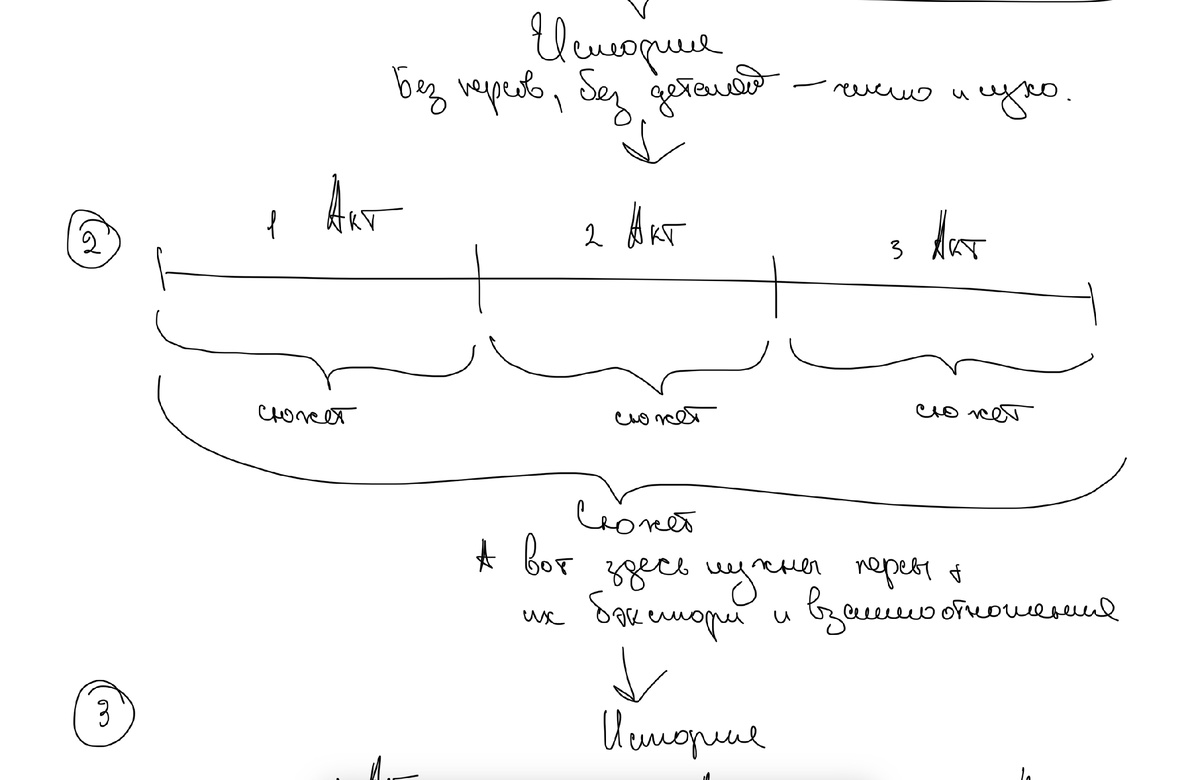 История
Без персов, без деталей – чисто и сухо.
1 Акт
2 Акт
3 Акт
2
сюжет
сюжет
сюжет
Сюжет
А вот здесь нужны персы +
их бэкстори и взаимоотношения
3
История
Акт